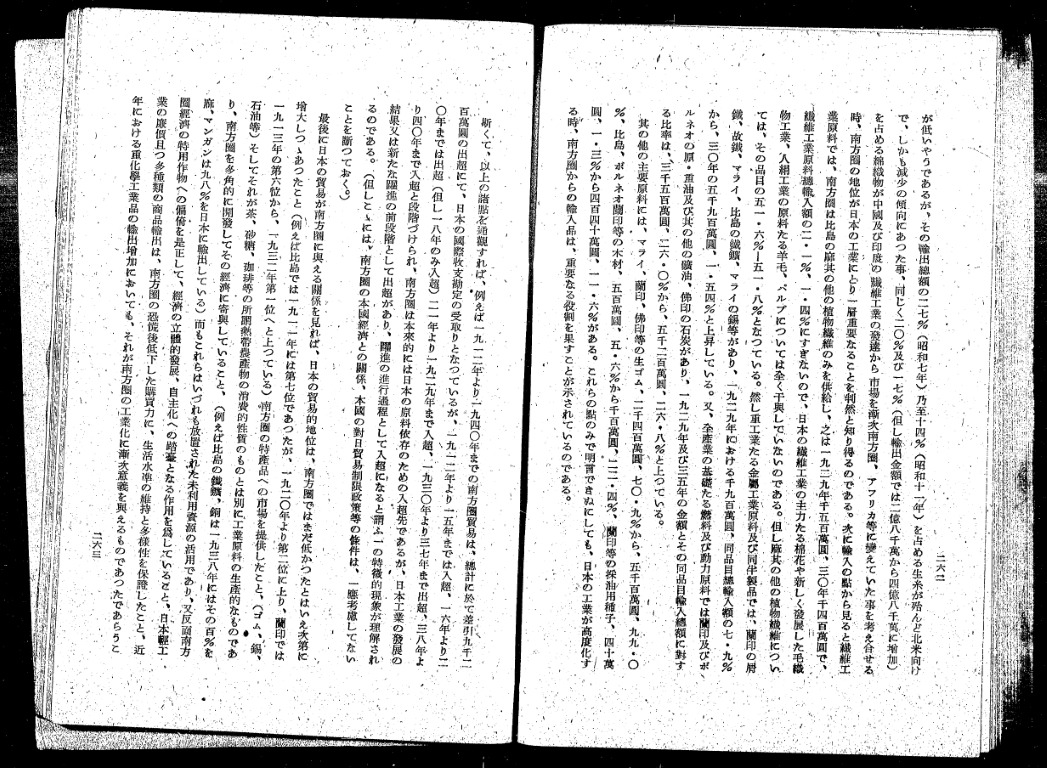 二六二
が低いやうであるが、その輸出總額の二七%(昭和七年)乃至十四%(昭和十一年)を占める生糸が殆んど北米向け
で、しかも減少の傾向にあつた事、同じく二〇%及び一七%(但し輸出金額では二億八千萬から四億八千萬に增加)
を占める綿織物が中國及び印度の纎維工業の發達から市場を漸次南方圈、アフリカ等に變えていた事を考え合せる
時、南方圈の地位が日本の工業にとり一層重要なることを判然と知り得るのである。次に輸入の點から見ると纎維工
業原料では、南方圈は比島の麻其の他の植物纎維のみを供給し、之は一九二九年千五百萬圓、三〇年千四百萬圓で、
纎維工業原料總輸入額の二・一%、一・四%にすぎないので、日本の纎維工業の主力たる棉花や新しく發展した毛織
物工業、人絹工業の原料たる羊毛、パルプについては全く干與していないのである。但し麻其の他の植物纎維につい
ては、その品目の五一・六%―五一・八%となつている。然し重工業たる金屬工業原料及び同半製品では、蘭印の屑
鐵、故鐵、マライ、比島の鐵鑛、マライの錫等があり、一九二九年における千九百萬圓、同品目總輸入額の七・九%
から、三〇年の五千九百萬圓、一・五四%と上昇している。又、全産業の基礎たる燃料及び動力原料では蘭印及びボ
ルネオの原・重油及び其の他の礦油、佛印の石炭があり、一九二九年及び三五年の金額とその同品目輸入總額に對す
る比率は、三千五百萬圓、二六・〇%から、五千二百萬圓、二六・八%と上つている。
其の他の主要原料には、マライ、蘭印、佛印等の生ゴム、二千四百萬圓、七〇・九%から、五千百萬圓、九九・〇
%、比島、ボルネオ蘭印等の木材、五百萬圓、五・六%から千百萬圓、二二・四%、蘭印等の採油用種子、四十萬
圓、一・三%から四百四十萬圓、一一・六%がある。これらの點のみで明言できぬにしても、日本の工業が高度化す
る時、南方圈からの輸入品は、重要なる役割を果すことが示されているのである。
斯くて、以上の諸點を通觀すれば、例えば一九一二年より一九四〇年までの南方圈貿易は、總計に於て差引九千二
百萬圓の出超にて、日本の國際收支勘定の受取りとなつているが、一九一二年より一五年までは入超、一六年より二
〇年までは出超(但し一八年のみ入超)二一年より一九二九年まで入超、一九三〇年より三七年まで出超、三八年よ
り四〇年まで入超と段階づけられ、南方圈は本來的には日本の原料依存のための入超先であるが、日本工業の發展の
結果又は新たな躍進の前段階として出超があり、躍進の進行過程として入超になると謂ふ一の特徵的現象が理解され
るのである。(但しこゝには、南方圈の本國經濟との關係、本國の對日貿易制限政策等の條件は、一應考慮してない
ことを斷つておく。)
最後に日本の貿易が南方圈に與える關係を見れば、日本の貿易的地位は、南方圈ではまだ低かつたとはいえ次第に
增大しつゝあつたこと(例えば比島では一九一二年には第七位であつたが、一九二〇年より第二位に上り、蘭印では
一九一三年の第六位から、一九三二年第一位へと上つている)南方圈の特産品への市場を提供したこと、(ゴム、錫、
石油等)そしてそれが茶、砂糖、珈琲等の所謂熱帶農産物の消費的性質のものとは別に工業原料の生産的なものであ
り、南方圈を多角的に開發してその經濟に寄與していること、(例えば比島の鐵鑛、銅は一九三八年にはその百%を
麻、マンガンは九八%を日本に輸出している)而もこれらはいづれも放置された未利用資源の活用であり、又反面南方
圈經濟の特用作物への偏倚を是正して、經濟の立體的發展、自主化への踏臺となる作用を爲しているど、日本輕工
業の廉價且つ多種類の商品輸出は、南方圈の恐慌後低下した購買力に、生活水準の維持と多樣性を保證したこと、近
年における重化學工業品の輸出增加においても、それが南方圈の工業化に漸次意義を與えるものであつたであらうこ
二六三